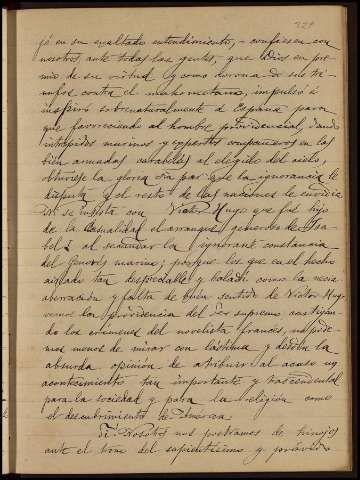 221
fé en su exaltado entendimiento, - confiesen con
nosotros ante todas las gentes, que Dios en pre-
mio de su virtud y como corona de sus tri-
unfos contra el mahometano, impulsó é
inspiró sobrenaturalmente á España para
que favoreciendo al hombre providencial, dando
intrépidos marinos y expertos compañeros en las
bien armadas carabelas al elegido del cielo,
obtuviese la gloria sin par que la ignorancia le
disputa y el resto de las naciones le envidia
No se insista con Victor Hugo que fué hijo
de la casualidad el arranque generoso de Isa-
bel I al secundar la ignorant constancia
del Genovés marino; porque los que en el hecho
aislado tan despreciable y baladí como la necia
aberración y falta de buen sentido de Victor Hugo
vemos la providencia del Ser supremo castigan-
do los crímenes del novelista francés, no pode-
mos menos de mirar con lástima y desdén la
absurda opinión de atribuir al acaso un
acontecimiento tan importante y trascendental
para la sociedad y para la religión como
el descubrimiento de América.
Si. Nosotros nos postramos de hinojos
ante el trono del sapientísimo y próvido